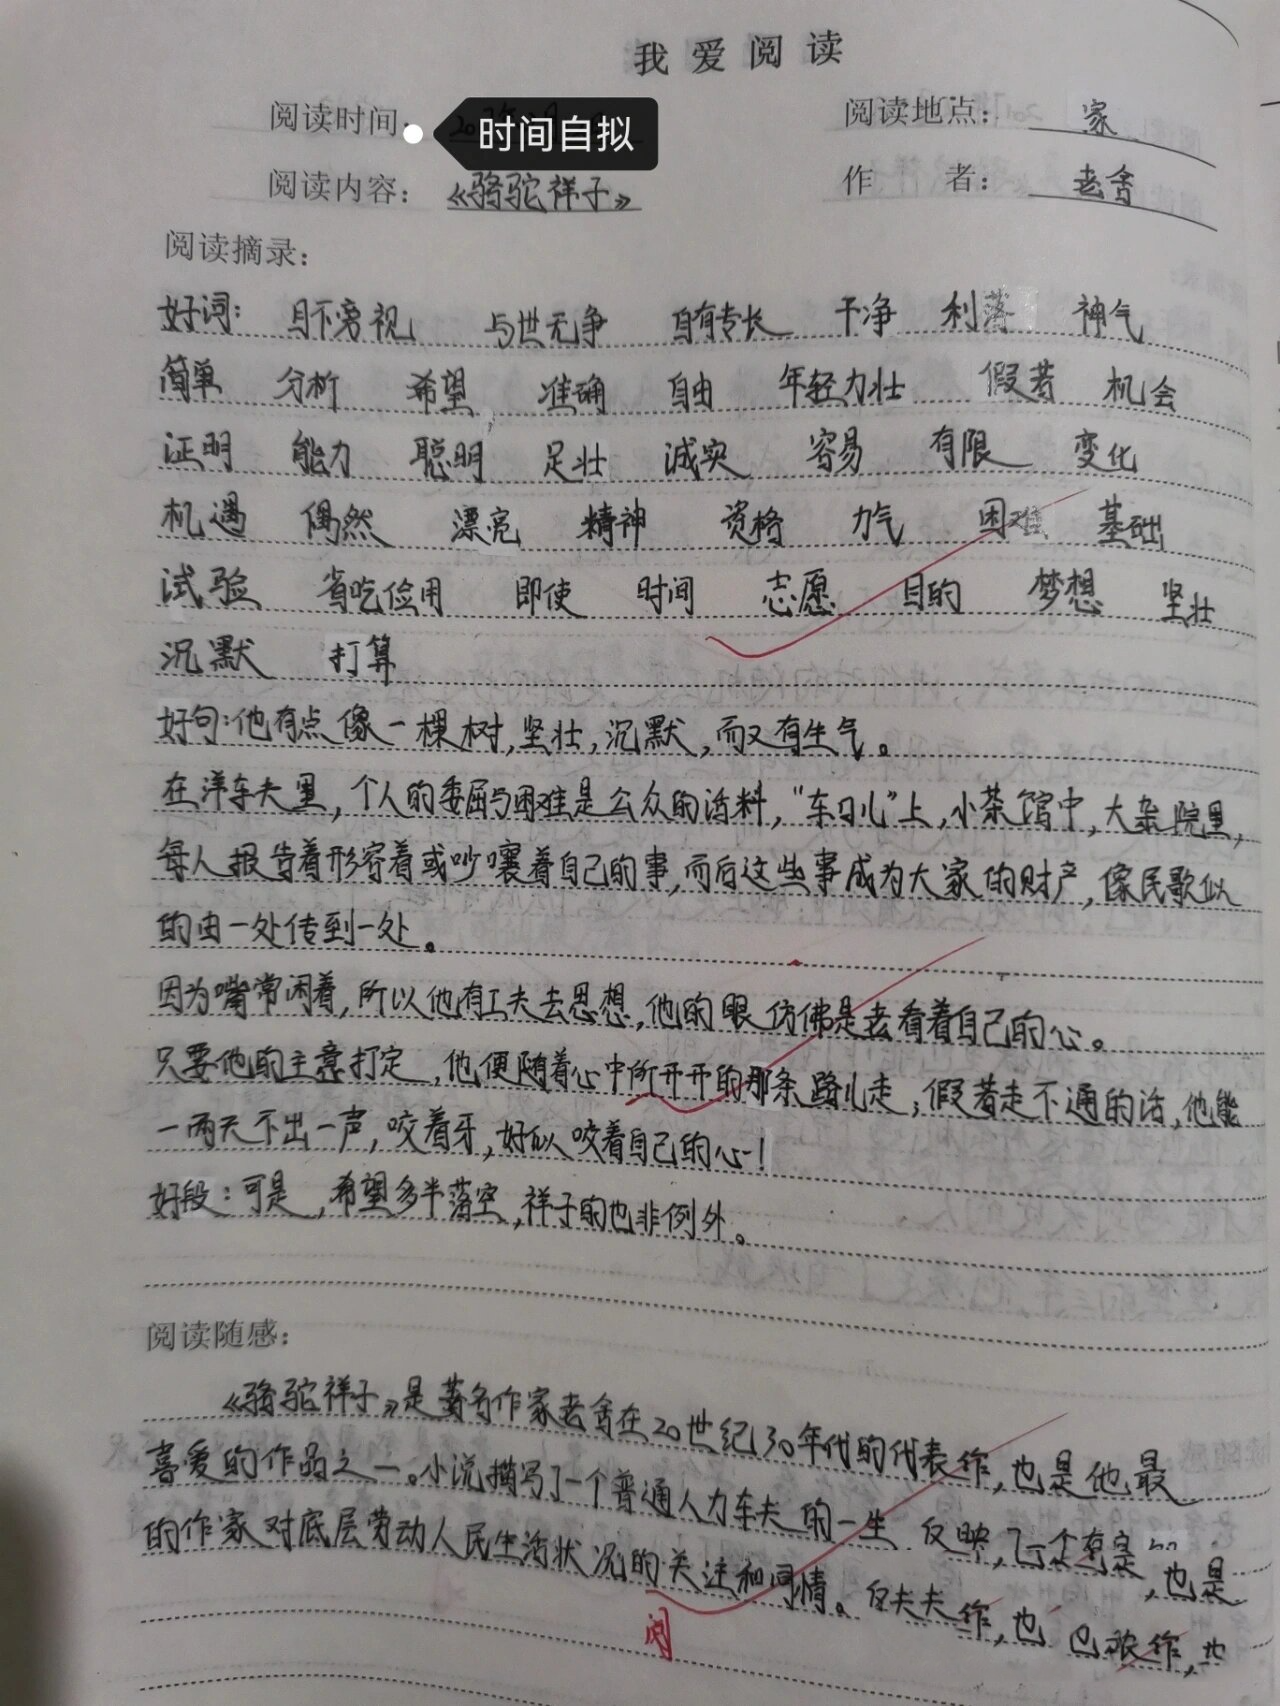 我爱阅读
阅读时间： 时间自拟 阅读地点： 家
阅读内容：《骆驼祥子》 作 者： 老舍
阅读摘录：
好词： 目不旁视 与世无争 自有专长 干净 利落 神气
简单 分析 希望 准确 自由 年轻力壮 假若 机会
证明 能力 聪明 足壮 诚实 容易 有限 变化
机遇 偶然 漂亮 精神 资格 力气 困难 基础
试验 省吃俭用 即使 时间 志愿 目的 梦想 坚壮
沉默 打算
好句：他有点像一棵树，坚壮，沉默，而又有生气。
在洋车夫里，个人的委屈与困难是公众的话料，“车口儿”上，小茶馆中，大杂院里，
每人报告着形容着或吵嚷着自己的事，而后这些事成为大家的财产，像民歌似
的由一处传到一处。
因为嘴常闲着，所以他有工夫去思想，他的眼仿佛是老看着自己的心。
只要他的主意打定，他便随着心中所开开的那条路儿走；假若走不通的话，他能
一两天不出一声，咬着牙，好似咬着自己的心！
好段：可是，希望多半落空，祥子的也非例外。
阅读随感：
《骆驼祥子》是著名作家老舍在20世纪30年代的代表作，也是他最
喜爱的作品之一。小说描写了一个普通人力车夫的一生，反映，
的作家对底层劳动人民生活状况的关注和同情。 作，也
阅